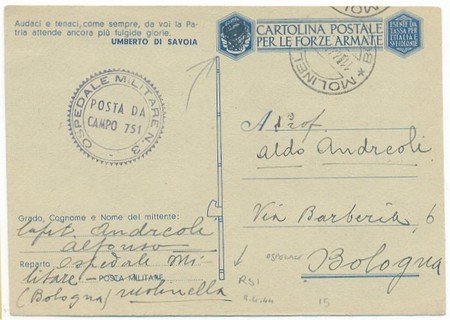 Audaci e tenaci, come sempre, da voi la Pa-
tria attende ancora più fulgide glorie.
UMBERTO DI SAVOIA
CARTOLINA POSTALE
PER LE FORZE ARMATE
ESENTE DA
TASSA PER
L'ITALIA E
SUE COLONIE
MOLINEL
OSPEDALE MILITARE N. 3
POSTA DA
CAMPO 751
Al Prof.
Aldo Andreoli
Via Barberia, 6
Bologna
Grado, Cognome e Nome del mittente:
Capit. Andreoli
Alfonso
Reparto Ospedale Mi-
litare - POSTA MILITARE
(Bologna) Molinella
RSI
15